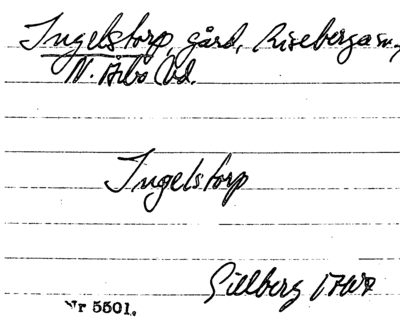 Ingelstorp, gård, Riseberga sn,
N. Åsbo hd.
Ingelstorp
Gillberg 1767
Nr 5501.